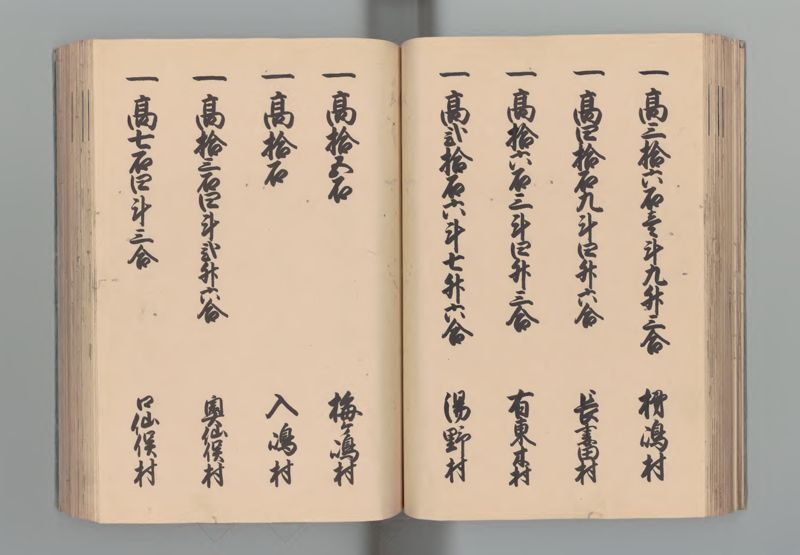 一高三拾六石壱斗九升三合 柵嶋村
一高四拾石九斗四升六合 長妻田村
一高拾六石三斗四升三合 有東木村
一高弐拾石六斗七升六合 湯野村
一高拾五石 梅ケ嶋村
一高拾石 入嶋村
一高拾三石四斗弐升六合 奥仙俣村
一高七石四斗三合 口仙俣村